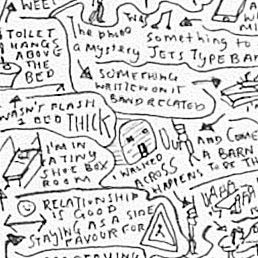 WEE!
TOILET
HANGS
ABOVE
THE
BED
The PHOTO
a MYSTERY
Something to
JETS TYPE BAR
SOMETHING
WRITTEN ON IT
BAND RELATED
WASN'T FLASH
BED THICK
I'M IN
A TINY
SHOE BOX
ROOM
I WALKED
ACROSS
AND COME
A BARN
HAPPENS TO BE TH
RELATIONSHIP
IS GOOD
STAYING AS A SIDE
FAVOUR FOR